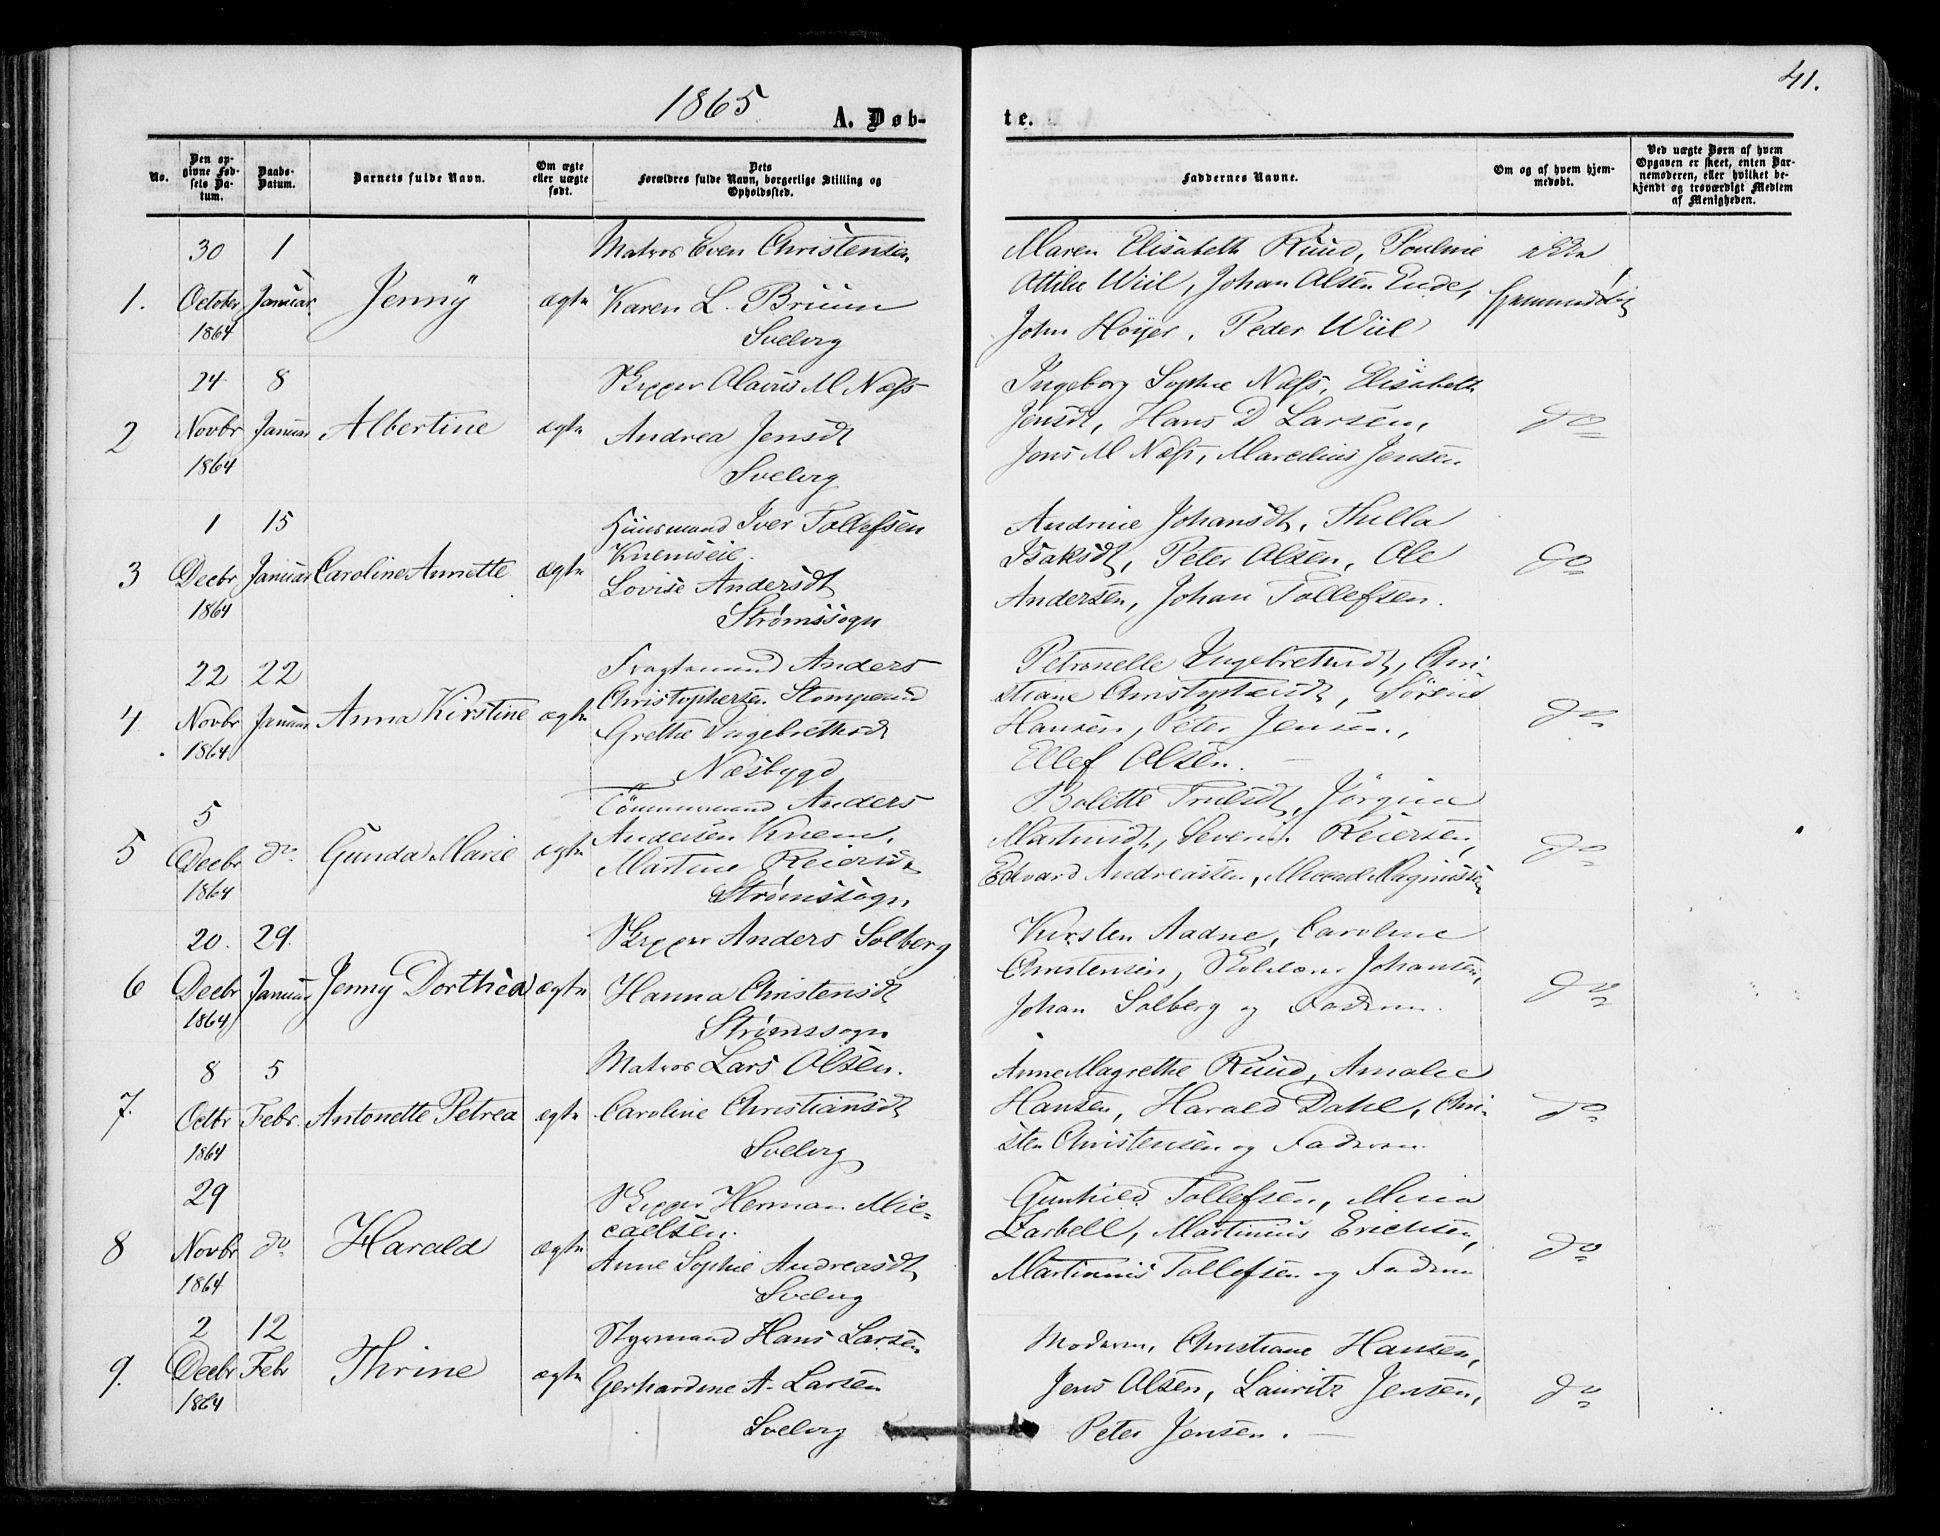 1865
41.
A. Døb-
te.
No.
Den op-
givne Fød-
sels Da-
tum.
Daabs-
Datum.
Barnets fulde Navn.
Om ægte
eller uægte
født.
Dets
Forældres fulde Navn, borgerlige Stilling og
Opholdssted.
Faddernes Navne.
Om og af hvem hjem-
medøbt.
Ved uægte Børn af hvem
Opgaven er skeet, enten Bar-
nemoderen, eller hvilket be-
kjendt og troværdigt Medlem
af Menigheden.
1.
30
October
1864
1
Januar
Jenny
ægte
Matros Even Christensen
Karen L. Bruun
Svelvig
Maren Elisabeth Ruud, Pouline
Attilie Wiil, Johan Olsen Ende,
John Høyer, Peder Wiil
ikke
hjemmedøbt
2
24
Novbr
1864
8
Januar
Albertine
ægte
Skipper Olavus M Næss
Andrea Jensdt
Svelvig
Ingeborg Sophie Næss, Elisabeth
Jensdt, Hans D Larsen,
Jens M Næss, Marelius Jensen
do
3
1
Decbr
1864
15
Januar
Caroline Annette
ægte
Huusmand Iver Tollefsen
Knemseie.
Lovise Andersdt
Strømssogn
Andrine Johansdt, Thulla
Isaksdt, Peter Olsen, Ole
Andersen, Johan Tollefsen.
do
4
22
Novbr
1864
22
Januar
Anna Kirstine
ægte
Fragtemand Anders
Christophersen Stomperud
Grethe Ingebrethsdt
Næsbygd
Petronelle Ingebrethsdt, Chri-
stiane Christophersdt, Sørend
Hansen, Peter Jensen,
Ellef Olsen.
do
5
5
Decbr
1864
do
Gunda Marie
ægte
Tømmermand Anders
Andersen Knem,
Martine Reiersdt
Strømssogn
Bolette Trulsdt, Jørgine
Martinsdt, Severin Reiersen,
Edvard Andreassen, Magnussen
do
6
20.
Decbr
1864
29.
Januar
Jenny Dorthea
ægte
Skipper Anders Solberg
Hanna Christensdt
Strømssogn
Kirsten Aadne, Caroline
Christensen, Johansen,
Johan Solberg og Faderen.
do
7.
8
Octbr
1864
5
Febr.
Antonette Petrea
ægte
Matros Lars Olsen.
Caroline Christiansdt
Svelvig
Anne Magrethe Ruud, Amalie
Hansen, Harald Dahl, Chri-
sten Christensen og Faderen
do
8
29
Novbr
1864
do
Harald
ægte
Skipper Herman Mic-
caelsen.
Anne Sophie Andreasdt
Svelvig
Gunhild Tollefsen, Mina
Zarbell, Martinius Erichsen,
Martinius Tollefsen og Faderen
do
9.
2
Decbr
1864
12
Febr
Thrine
ægte
Styrmand Hans Larsen
Gerhardine A. Larsen
Svelvig
Moderen, Christiane Hansen,
Jens Olsen, Lauritz Jensen,
Peter Jensen.
do